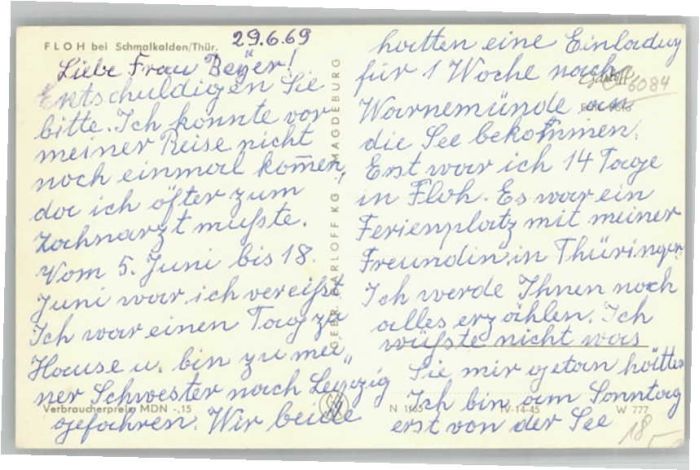 FLOH bei Schmalkalden/Thür.
29.6.69
Liebe Frau Beyer!
Entschuldigen Sie
bitte. Ich konnte vor
meiner Reise nicht
noch einmal kom̄en,
da ich öfter zum
Zahnarzt mußte.
Vom 5. Juni bis 18.
Juni war ich vereißt
Ich war einen Tag zu
Hause u. bin zu mei„
ner Schwester nach Leipzig
gefahren. Wir beide
Verbraucherpreis MDN -,15
GEBR. GARLOFF KG · MAGDEBURG
hatten eine Einladug
für 1 Woche nach
Warnemünde an
die See bekommen.
Erst war ich 14 Tage
in Floh. Es war ein
Ferienplatz mit meiner
Freundin in Thüringen.
Ich werde Ihnen noch
alles erzählen. Ich
wüßte nicht was
Sie mir getan hätten
Ich bin am Sonntag
erst von der See
IV-14-45
W 777
6084
18